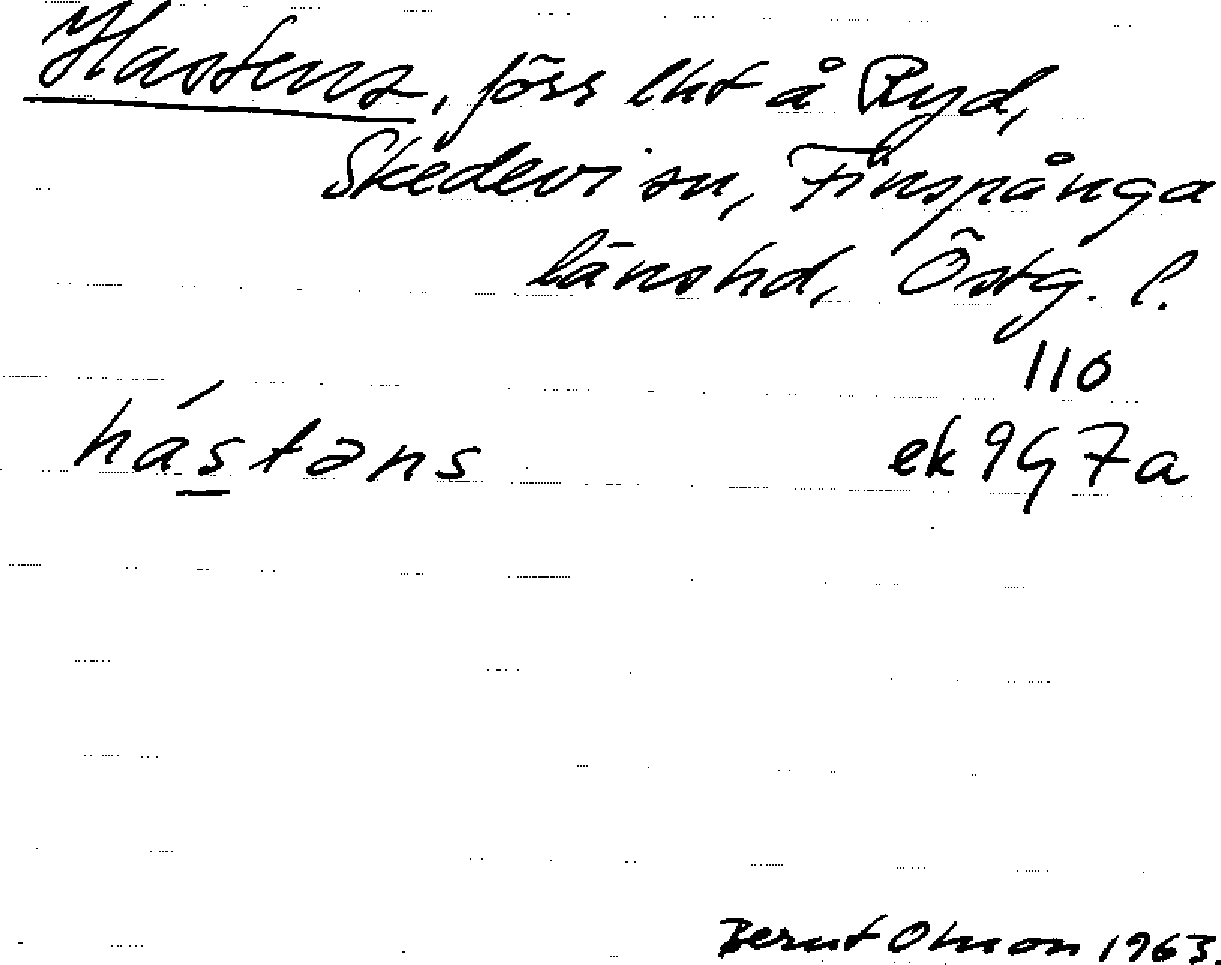 Hastens, förr lht å Ryd,
Skedevi sn, Finspånga
länshd, Östg. l.
110
hás̲təns ek 9G7a
Bernt Olsson 1963.